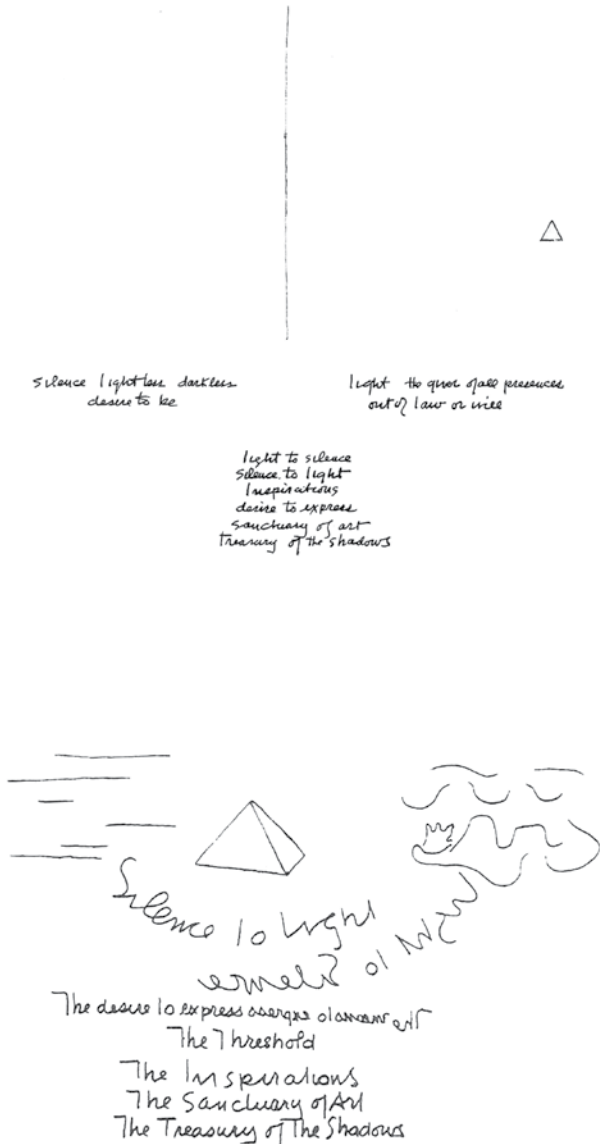 silence lightless darkless
desire to be
light the giver of all presences
out of law or will
light to silence
silence to light
Inspirations
desire to express
sanctuary of art
treasury of the shadows
Silence to Light
Light to Silence
The desire to express
The Threshold
The Inspirations
The Sanctuary of Art
The Treasury of The Shadows